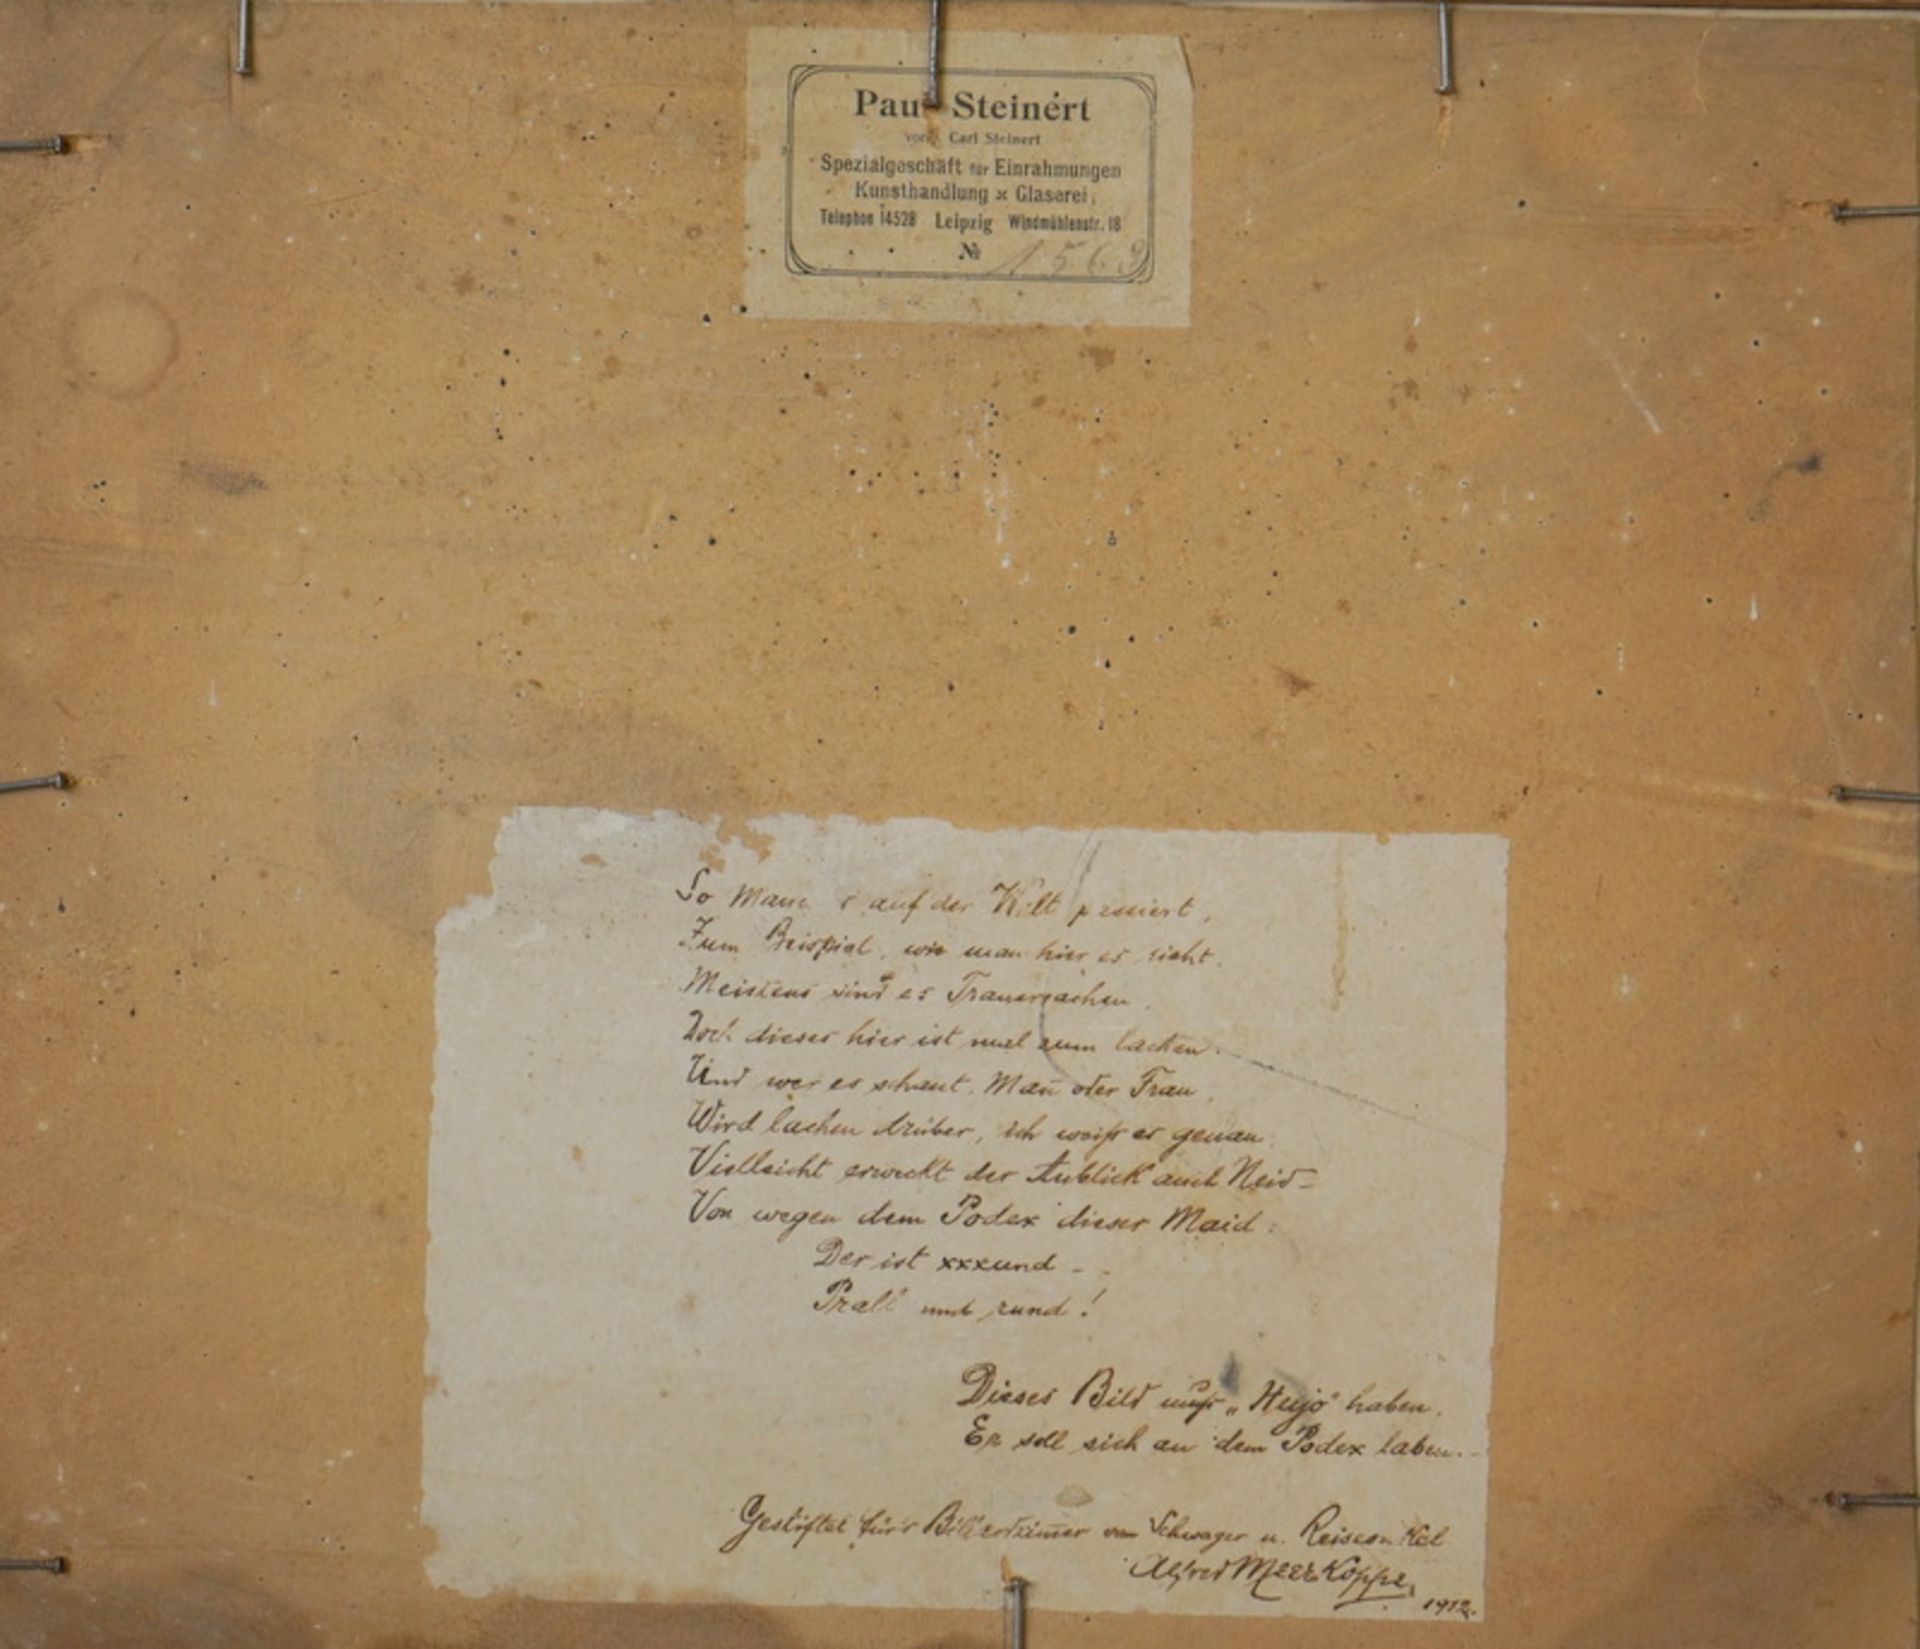 Paul Steinert
vorm. Carl Steinert
Spezialgeschäft für Einrahmungen
Kunsthandlung × Glaserei
Telephon 14528 Leipzig Windmühlenstr. 18
№ 1563
So auf der Welt passiert,
Zum Beispiel, wie man hier es sieht.
Meistens sind es Trauersachen,
Doch dieses hier ist mal zum lachen.
Und wer es schaut, Mañ oder Frau,
Wird lachen drüber, ich weiß es genau.
Vielleicht erweckt der Anblick auch Neid –
Von wegen dem Podex dieser Maid:
Der ist xxxund –
Prall und rund!
Dieses Bild muß „Hujo" haben.
Er soll sich an dem Podex laben.
Gestiftet für's Bilderzim̄er vom Schwager u. Reiseonkel
Alfred Meerkoppe,
1912.